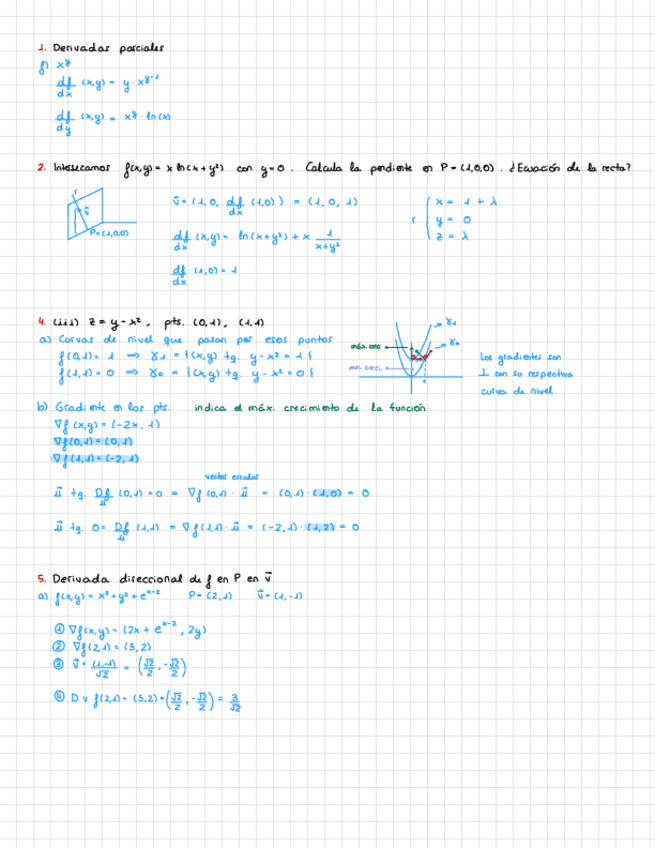 1. Derivadas parciales
f) x^y
df/dx (x,y) = y · x^{y-1}
df/dy (x,y) = x^y · ln(x)
2. Intersecamos f(x,y) = x ln(x + y²) con y=0. Calcula la pendiente en P = (1,0,0). ¿Ecuación de la recta?
r
v⃗
P=(1,0,0)
v⃗ = (1, 0, df/dx (1,0)) = (1, 0, 1)
df/dx (x,y) = ln(x+y²) + x 1/(x+y²)
df/dx (1,0) = 1
r { x = 1 + λ
y = 0
z = λ
4. (iii) z = y - x², pts. (0,1), (1,1)
a) Curvas de nivel que pasan por esos puntos
f(0,1) = 1 ⇒ γ₁ = {(x,y) tq. y - x² = 1}
f(1,1) = 0 ⇒ γ₀ = {(x,y) tq. y - x² = 0}
γ₁
γ₀
1
Los gradientes son
⊥ con su respectiva
curva de nivel
b) Gradiente en los pts. indica el máx. crecimiento de la función
∇f (x,y) = (-2x, 1)
∇f(0,1) = (0,1)
∇f(1,1) = (-2,1)
vector escalar
u⃗ tq. Df/u⃗ (0,1) = 0 = ∇f (0,1) · u⃗ = (0,1) · (1,0) = 0
u⃗ tq. 0 = Df/u⃗ (1,1) = ∇f(1,1) · u⃗ = (-2,1) · (1,2) = 0
5. Derivada direccional de f en P en v⃗
a) f(x,y) = x² + y² + e^{x-2} P = (2,1) v⃗ = (1,-1)
① ∇f(x,y) = (2x + e^{x-2}, 2y)
② ∇f(2,1) = (5,2)
③ v⃗ = (1,-1)/√2 = (√2/2, -√2/2)
④ D v f(2,1) = (5,2) • (√2/2, -√2/2) = 3/√2